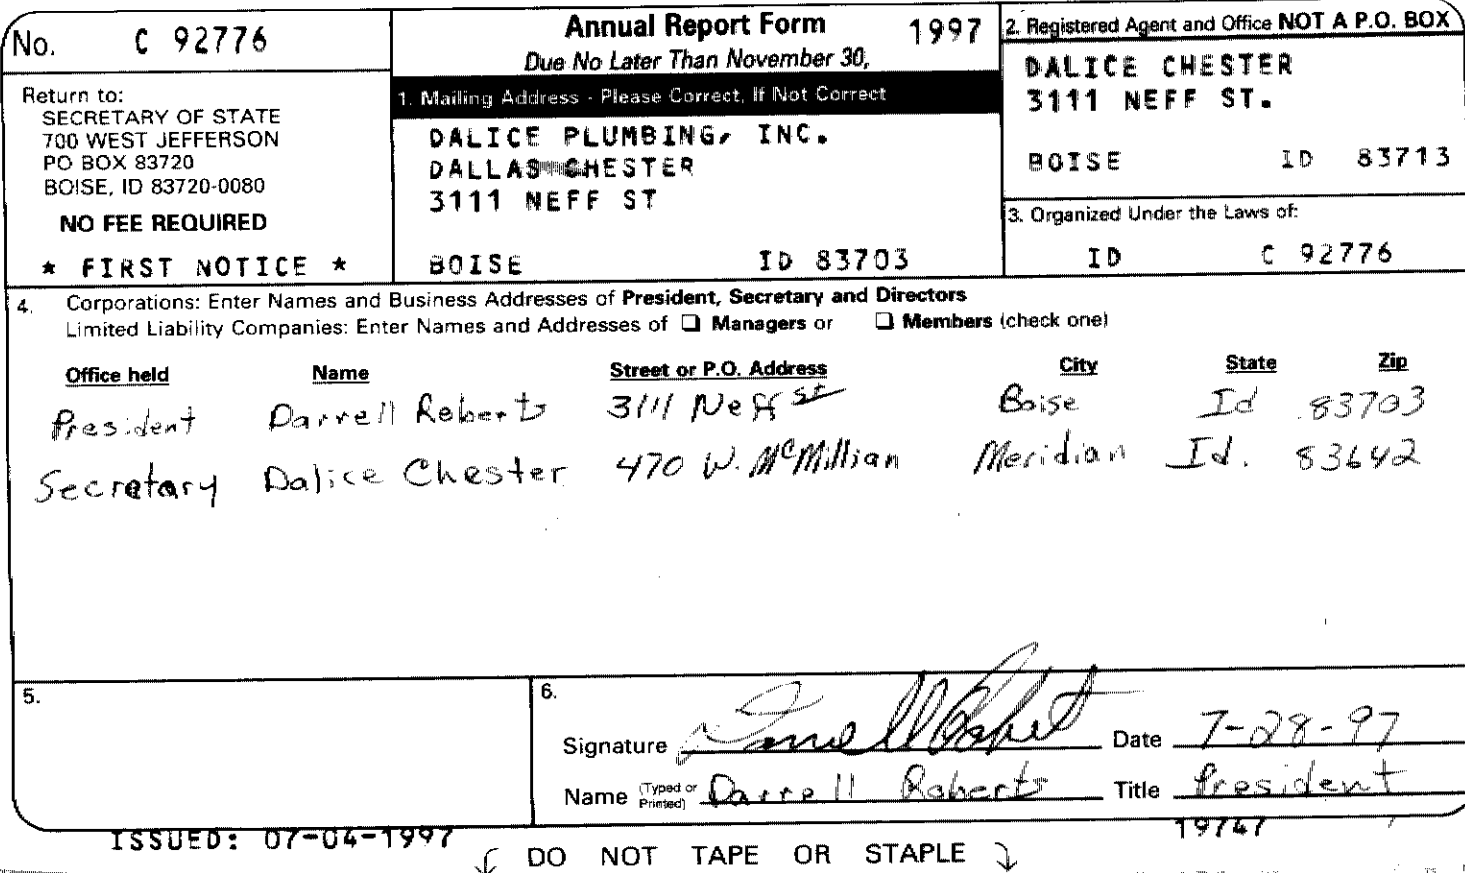 No. C 92776
Return to:
SECRETARY OF STATE
700 WEST JEFFERSON
PO BOX 83720
BOISE, ID 83720-0080
NO FEE REQUIRED
* FIRST NOTICE *
Annual Report Form 1997
Due No Later Than November 30,
1. Mailing Address - Please Correct, If Not Correct
DALICE PLUMBING, INC.
DALLAS CHESTER
3111 NEFF ST
BOISE ID 83703
2. Registered Agent and Office NOT A P.O. BOX
DALICE CHESTER
3111 NEFF ST.
BOISE ID 83713
3. Organized Under the Laws of:
ID C 92776
4. Corporations: Enter Names and Business Addresses of President, Secretary and Directors
Limited Liability Companies: Enter Names and Addresses of ❑ Managers or ❑ Members (check one)
Office held Name Street or P.O. Address City State Zip
President Darrell Roberts 3111 Neff st Boise Id 83703
Secretary Dalice Chester 470 W. McMillian Meridian Id. 83642
5.
6.
Signature Darrell Roberts Date 7-28-97
Name (Typed or Printed) Darrell Roberts Title President
ISSUED: 07-04-1997
19747
DO NOT TAPE OR STAPLE